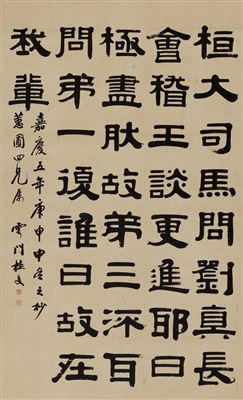 桓大司馬問劉真長
會稽王談更進耶曰
極盡肰故弟三流耳
問弟一復誰曰故在
我輩
嘉慶五年庚申中冬之杪
蕙圃四兄屬 雩門桂